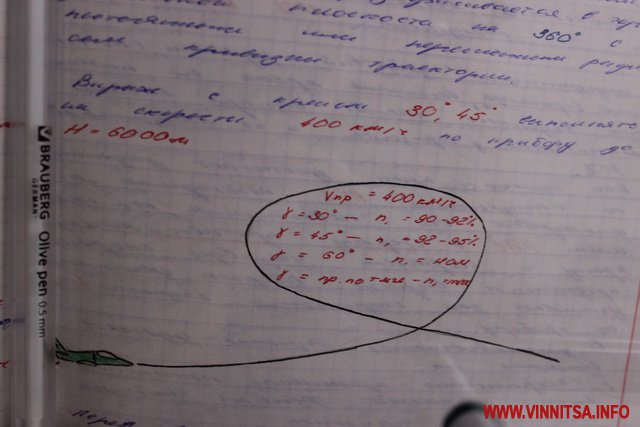 плоскости на 360° с
постоянным или переменным
сом кривизны траектории.
Вираж с креном 30°, 45° выполнять
на скорости 400 км/ч по прибору до
H = 6000м
Vпр = 400 км/ч
γ = 30° — n₁ = 90-92%
γ = 45° — n₁ = 92-95%
γ = 60° — n₁ = ном
γ = пр. по тяге - n₁ max
BRAUBERG
GERMANY
Olive pen 0.5 mm
WWW.VINNITSA.INFO